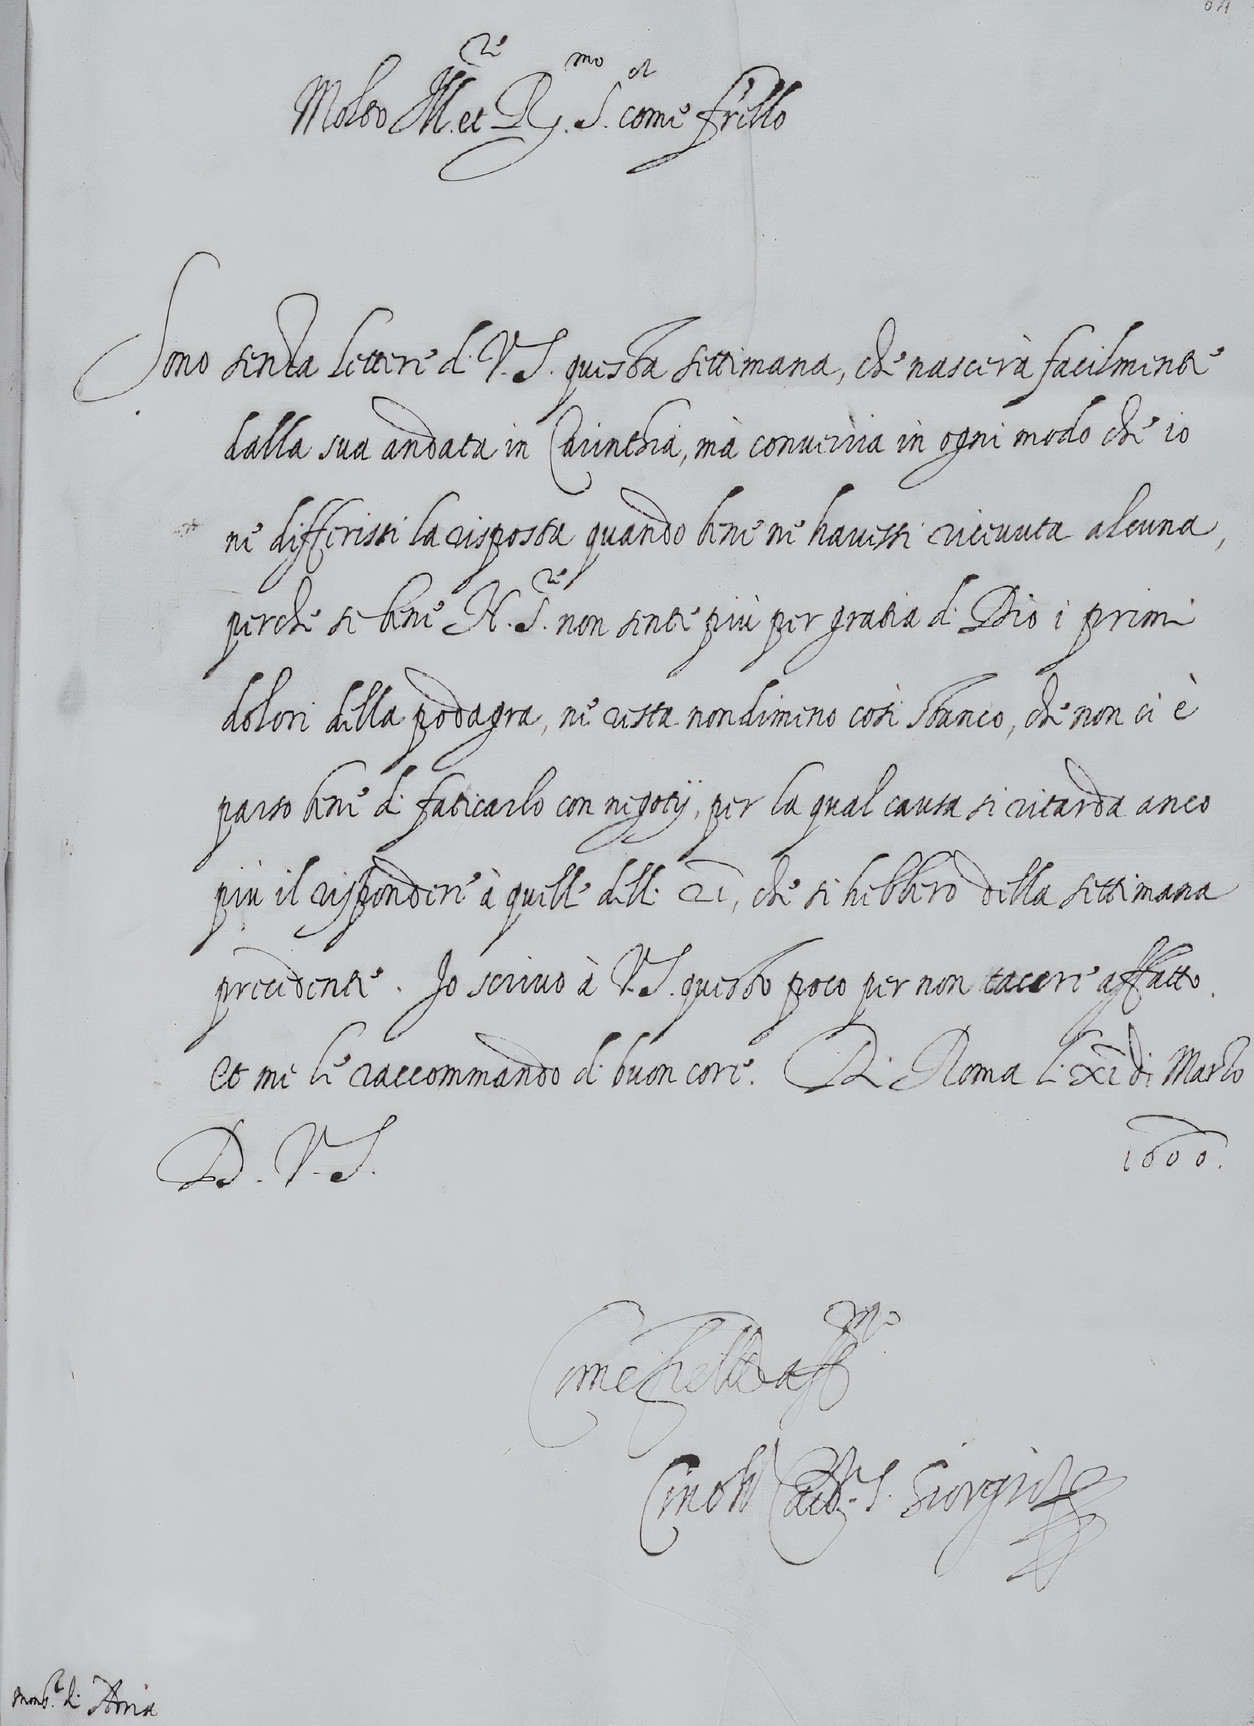 Molto Ill.re et R.mo S.or come fr̃ello
Sono senza lettere di V.S. questa settimana, che nascerà facilmente
dalla sua andata in Carinthia, mà converria in ogni modo che io
ne differissi la risposta quando bene ne havessi ricevuta alcuna,
perche se bene N. S.re non sente più per gratia di Dio i primi
dolori della podagra, ne resta nondimeno così stanco, che non ci è
parso bene di faticarlo con negotij, per la qual causa si ritarda anco
più il rispondere à quelle delli 21, che si hebbero della settimana
precedente. Io scrivo à V.S. questo poco per non tacere affatto.
Et me le raccommando di buon core. Di Roma li xi di Marzo
1600.
D. V. S.
Come fr̃ello aff.mo
Cinthio Card. S. Giorgio
Mons.r di Adria